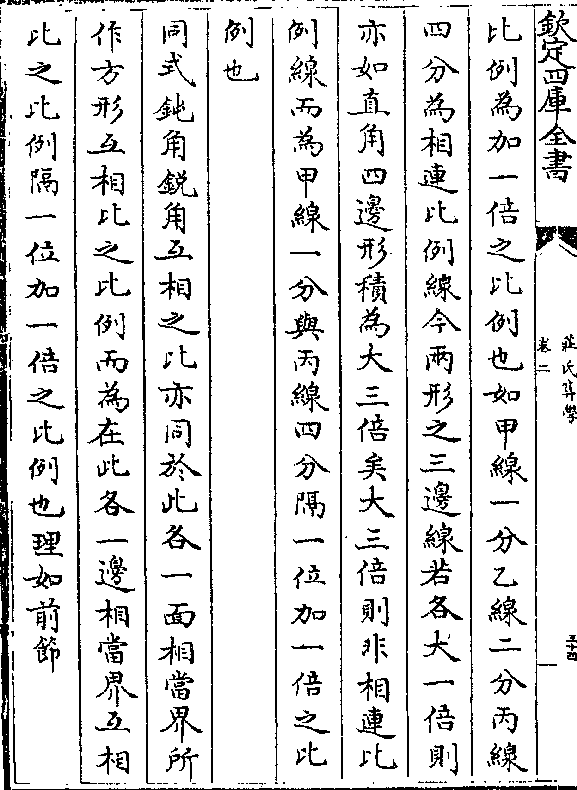 欽定四庫全書
莊氏算學
卷二
五十四
比例為加一倍之比例也如甲線一分乙線二分丙線
四分為相連比例線今兩形之三邊線若各大一倍則
亦如直角四邊形積為大三倍矣大三倍則非相連比
例線而為甲線一分與丙線四分隔一位加一倍之比
例也
同式鈍角銳角互相之比亦同於此各一面相當界所
作方形互相比之比例而為在此各一邊相當界互相
比之比例隔一位加一倍之比例也理如前節